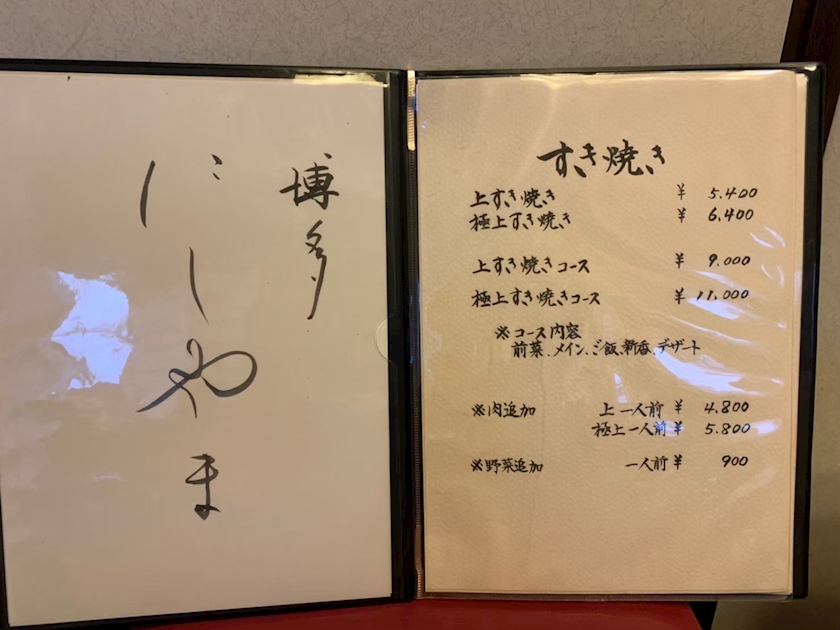 博多
にしやま
すき焼き
上すき焼き ¥ 5.400
極上すき焼き ¥ 6,400
上すき焼きコース ¥ 9.000
極上すき焼きコース ¥ 11,000
※コース内容
前菜、メイン、ご飯、新香、デザート
※肉追加 上 一人前 ¥ 4.800
極上一人前 ¥ 5.800
※野菜追加 一人前 ¥ 900